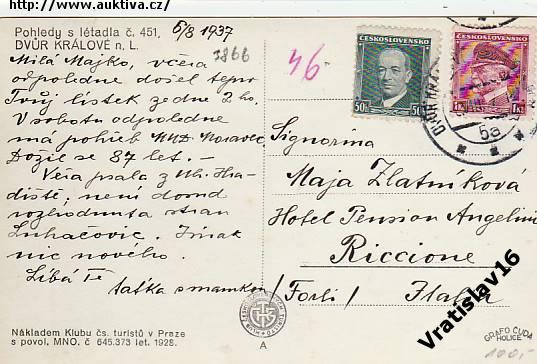 https://www.auktiva.cz/
Pohledy s létadla č. 451,
DVŮR KRÁLOVÉ n. L.
5/8 1937
3866
46-
Milá Majko, včera
odpoledne došel teprv
Tvůj lístek ze dne 2 ho.
V sobotu odpoledne
má pohřeb MUD Moravec
Dožil se 87 let. —
Věra psala z Uh. Hra-
diště, není dosud
rozhodnuta stran
Luhačovic. Jinak
nic nového.
Líbá Tě
taťka s mamkou
Nákladem Klubu čs. turistů v Praze
s povol. MNO. č 645.373 let. 1928.
A
ČESKOSLOVENSKO
50h 50h
ČESKOSLOVENSKO
1Kč
DVŮR KRÁ
5a
Signorina
Maja Zlatníková
Hotel Pension Angelini
Riccione
/Forli/ Italia
GRAFO ČUDA
HOLICE
100,-
Vratislav16